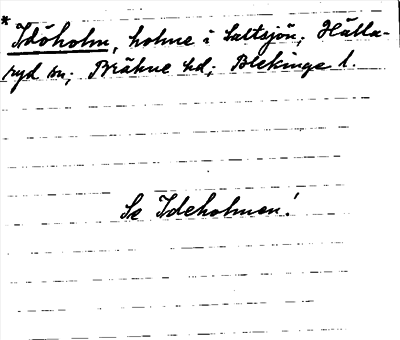 * Idöholm, holme i Saltsjön; Hälla-
ryd sn; Bräkne hd; Blekinge l.
Se Ideholmen!